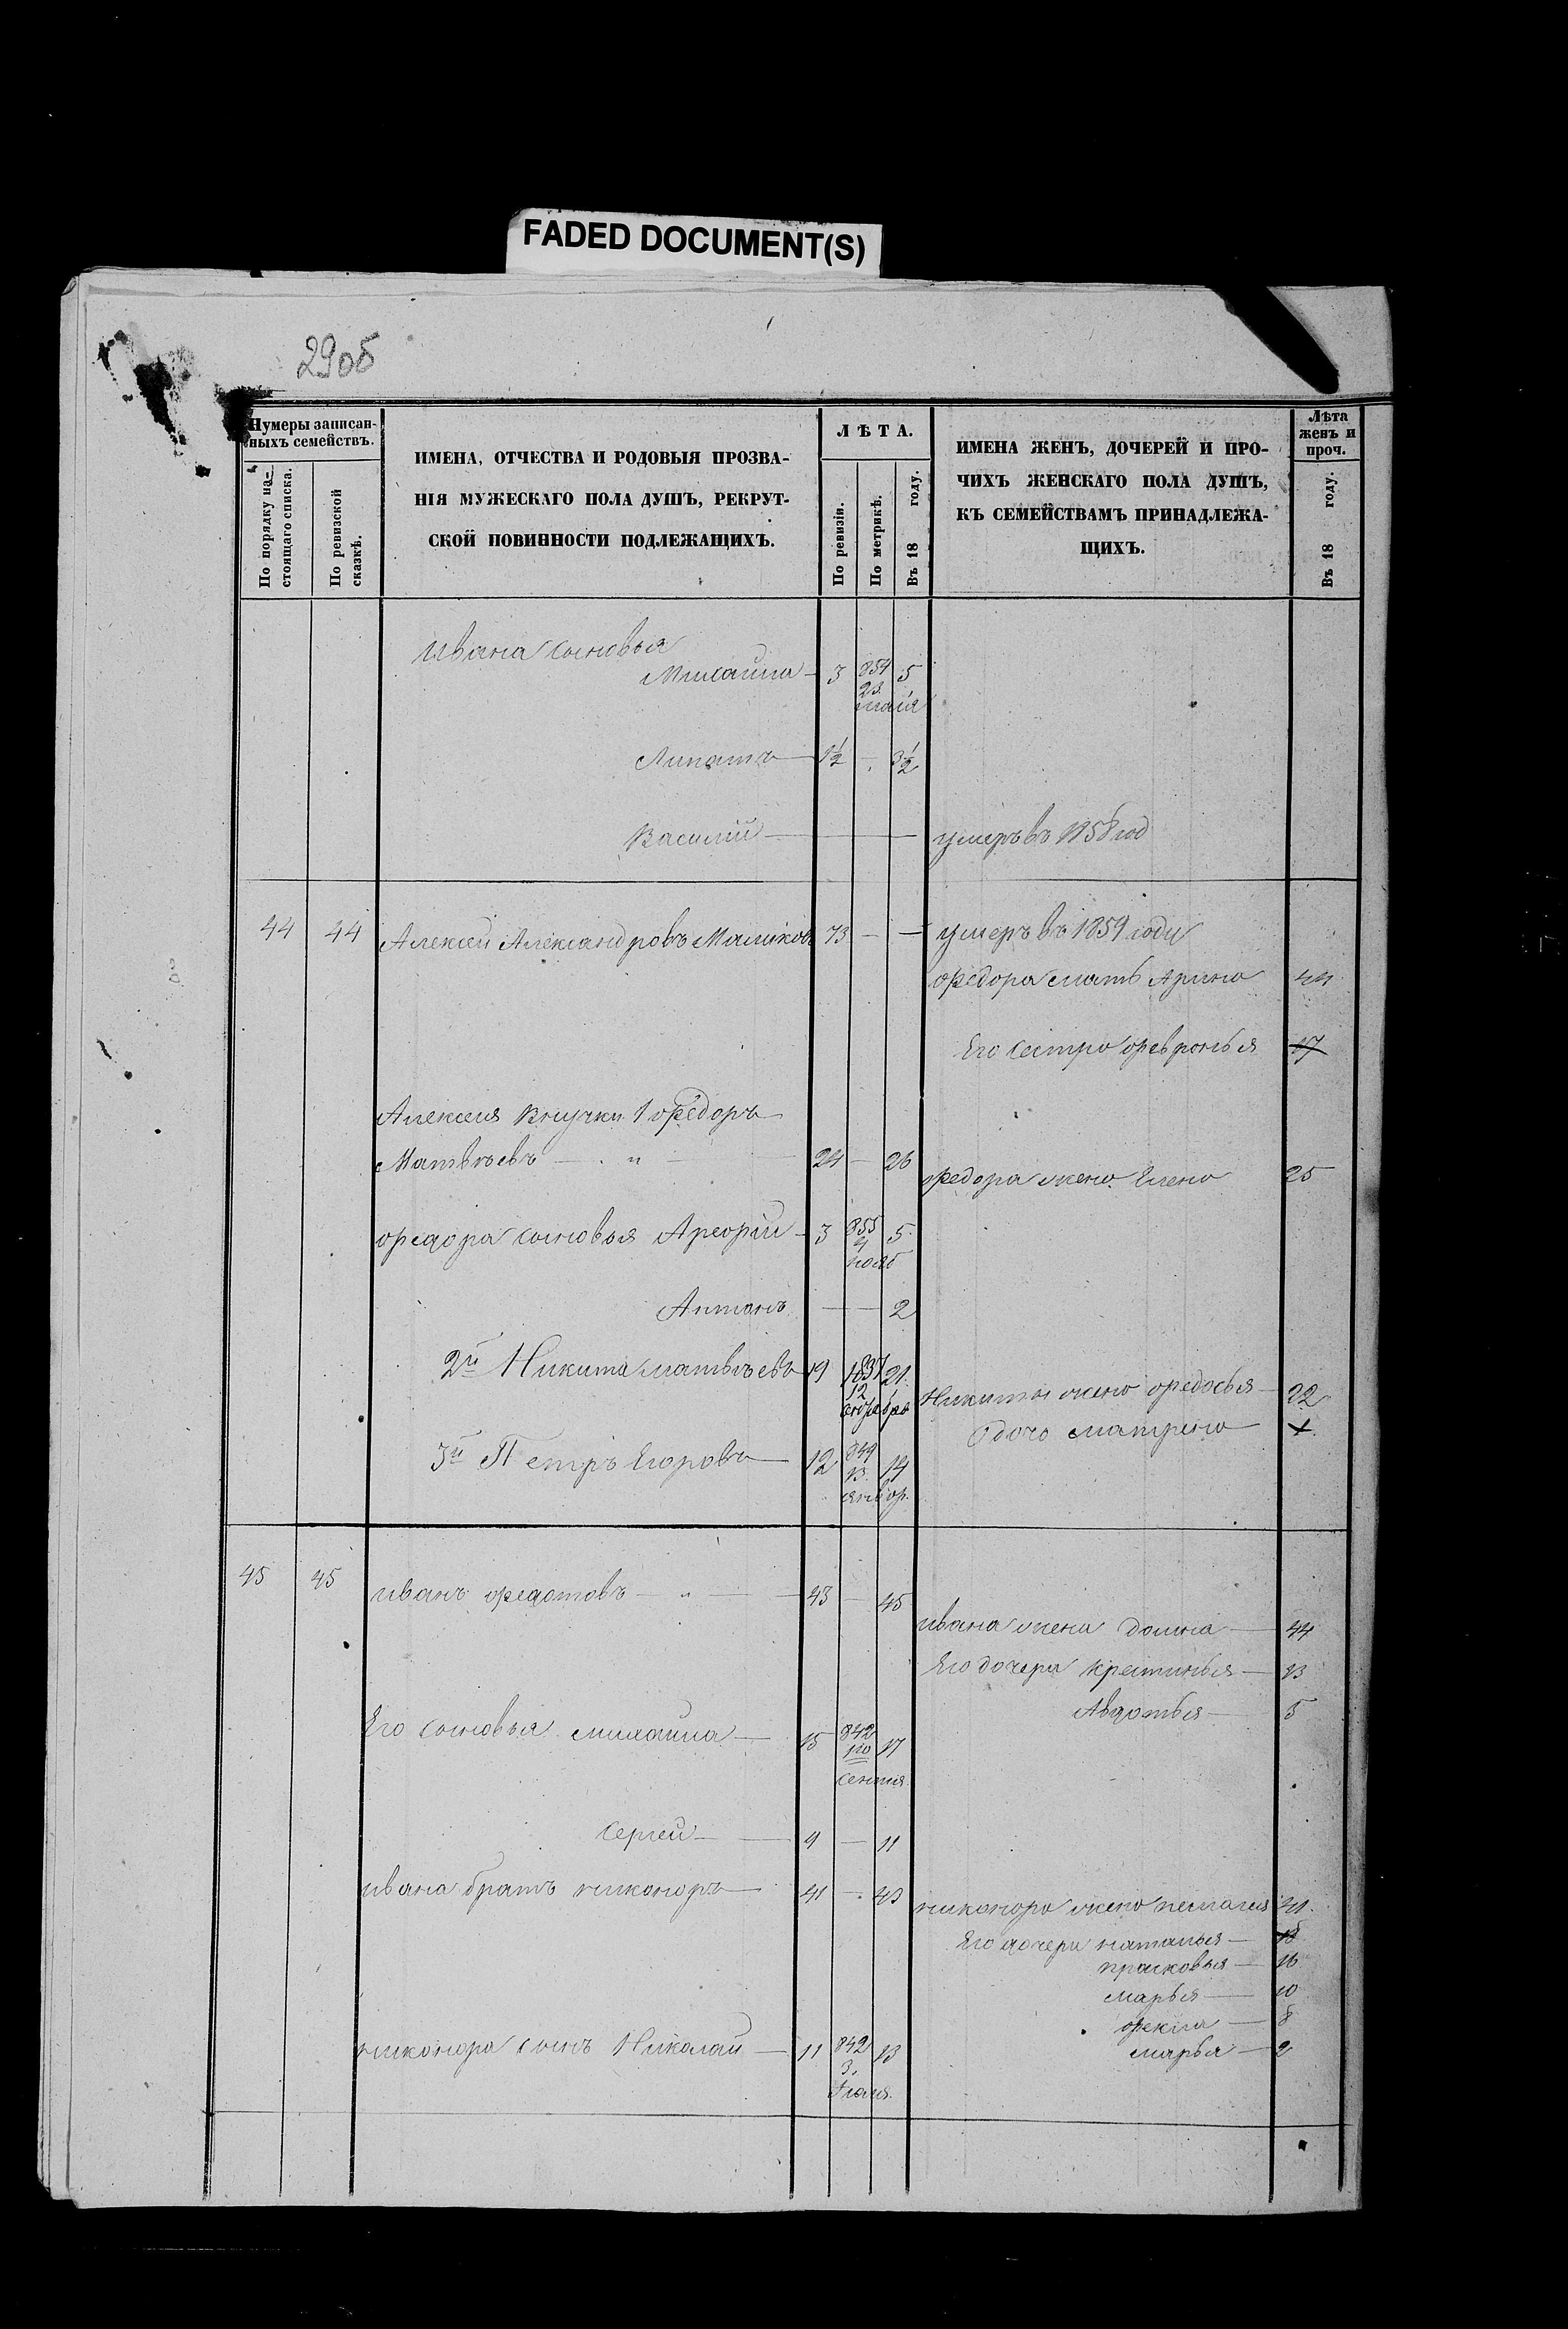 FADED DOCUMENT(S)
29об
Нумеры записан-
ныхъ семействъ.
По порядку на-
стоящаго списка.
По ревизской
сказкѣ.
ИМЕНА, ОТЧЕСТВА И РОДОВЫЯ ПРОЗВА-
НІЯ МУЖЕСКАГО ПОЛА ДУШЪ, РЕКРУТ-
СКОЙ ПОВИННОСТИ ПОДЛЕЖАЩИХЪ.
ЛѢТА.
По ревизіи.
По метрикѣ.
Въ 18 году.
ИМЕНА ЖЕНЪ, ДОЧЕРЕЙ И ПРО-
ЧИХЪ ЖЕНСКАГО ПОЛА ДУШЪ,
КЪ СЕМЕЙСТВАМЪ ПРИНАДЛЕЖА-
ЩИХЪ.
Лѣта
женъ и
проч.
Въ 18 году.
Ивана сыновья
Михаила — 3 854 5
23
маія
Липатъ — 1½ — 3½
Василій — умеръ въ 1858 год
44 44 Алексей Александровъ Маликовъ 73 — — умеръ въ 1859 году
Федора мать Арина 44
Его сестра Февронья 17
Алексея внучки 1 Федоръ
Матвѣевъ — 24 — 26
Федора жена Елена 25
Федора сыновья 3 855 5
4
нояб
Антонъ — — 2
2й Никита Матвѣевъ 19 1837 21
12
Никиты жена Федосья 22
дочь Матрена
3й Петръ Егоровъ — 12 849 14
13
январ.
45 45 Иванъ Федотовъ — 43 — 45
Ивана жена Домна — 44
Его дочери Крестинья — 13
Авдотья — 5
Его сыновья Михаила — 15 842 17
1го
сентя
Сергей — 9 — 11
Ивана братъ Никоноръ — 41 — 43
Никонора жена Пелагея 41
Его дочери Наталья — 18
Прасковья — 16
Марья — 10
Фекла — 8
Марья — 2
Никонора сынъ Николай — 11 842 13
3.